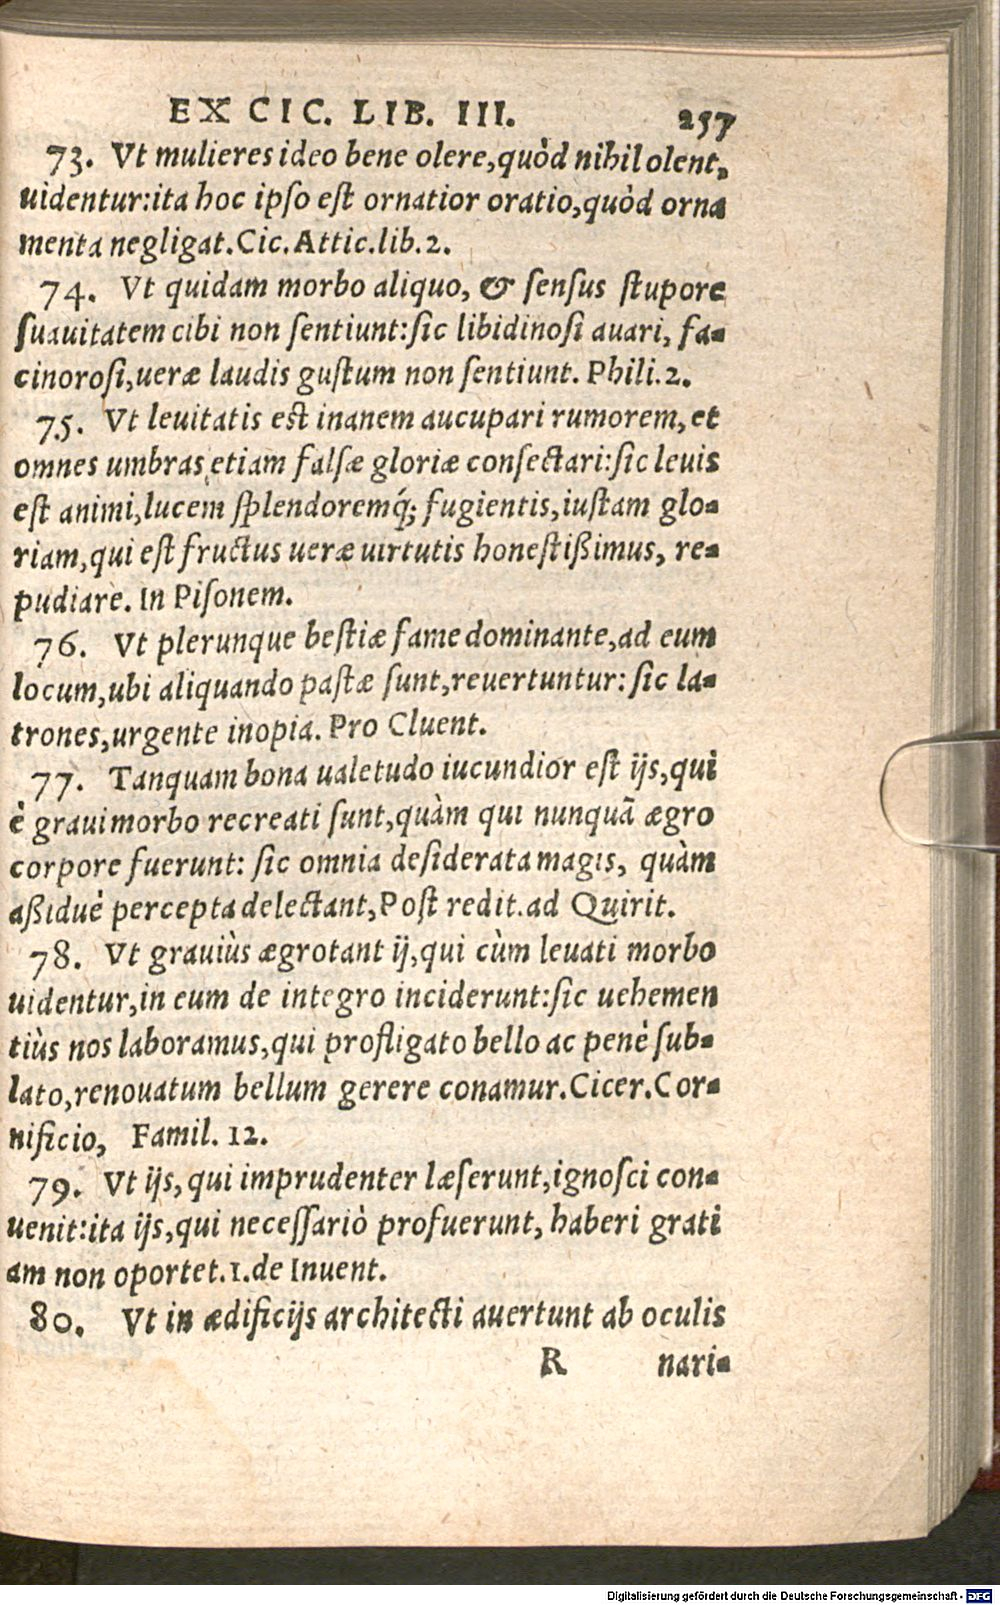 EX CIC. LIB. III. 257
73. Vt mulieres ideo bene olere,quòd nihil olent,
uidentur:ita hoc ipso est ornatior oratio,quòd orna
menta negligat.Cic.Attic.lib.2.
74. Vt quidam morbo aliquo, & sensus stupore
suauitatem cibi non sentiunt:sic libidinosi auari, fa-
cinorosi,ueræ laudis gustum non sentiunt. Phili.2.
75. Vt leuitatis est inanem aucupari rumorem,et
omnes umbras etiam falsæ gloriæ consectari:sic leuis
est animi,lucem splendoremq́; fugientis,iustam glo-
riam,qui est fructus ueræ uirtutis honestißimus, re-
pudiare. In Pisonem.
76. Vt plerunque bestiæ fame dominante,ad eum
locum,ubi aliquando pastæ sunt,reuertuntur: sic la-
trones,urgente inopia. Pro Cluent.
77. Tanquam bona ualetudo iucundior est ijs,qui
è graui morbo recreati sunt,quàm qui nunquã ægro
corpore fuerunt: sic omnia desiderata magis, quàm
aßiduè percepta delectant,Post redit.ad Quirit.
78. Vt grauiùs ægrotant ij,qui cùm leuati morbo
uidentur,in eum de integro inciderunt:sic uehemen
tiùs nos laboramus,qui profligato bello ac penè sub-
lato,renouatum bellum gerere conamur.Cicer.Cor-
nificio, Famil. 12.
79. Vt ijs, qui imprudenter læserunt,ignosci con-
uenit:ita ijs,qui necessariò profuerunt, haberi grati
am non oportet.1.de Inuent.
80. Vt in ædificijs architecti auertunt ab oculis
R nari-
Digitalisierung gefördert durch die Deutsche Forschungsgemeinschaft - DFG